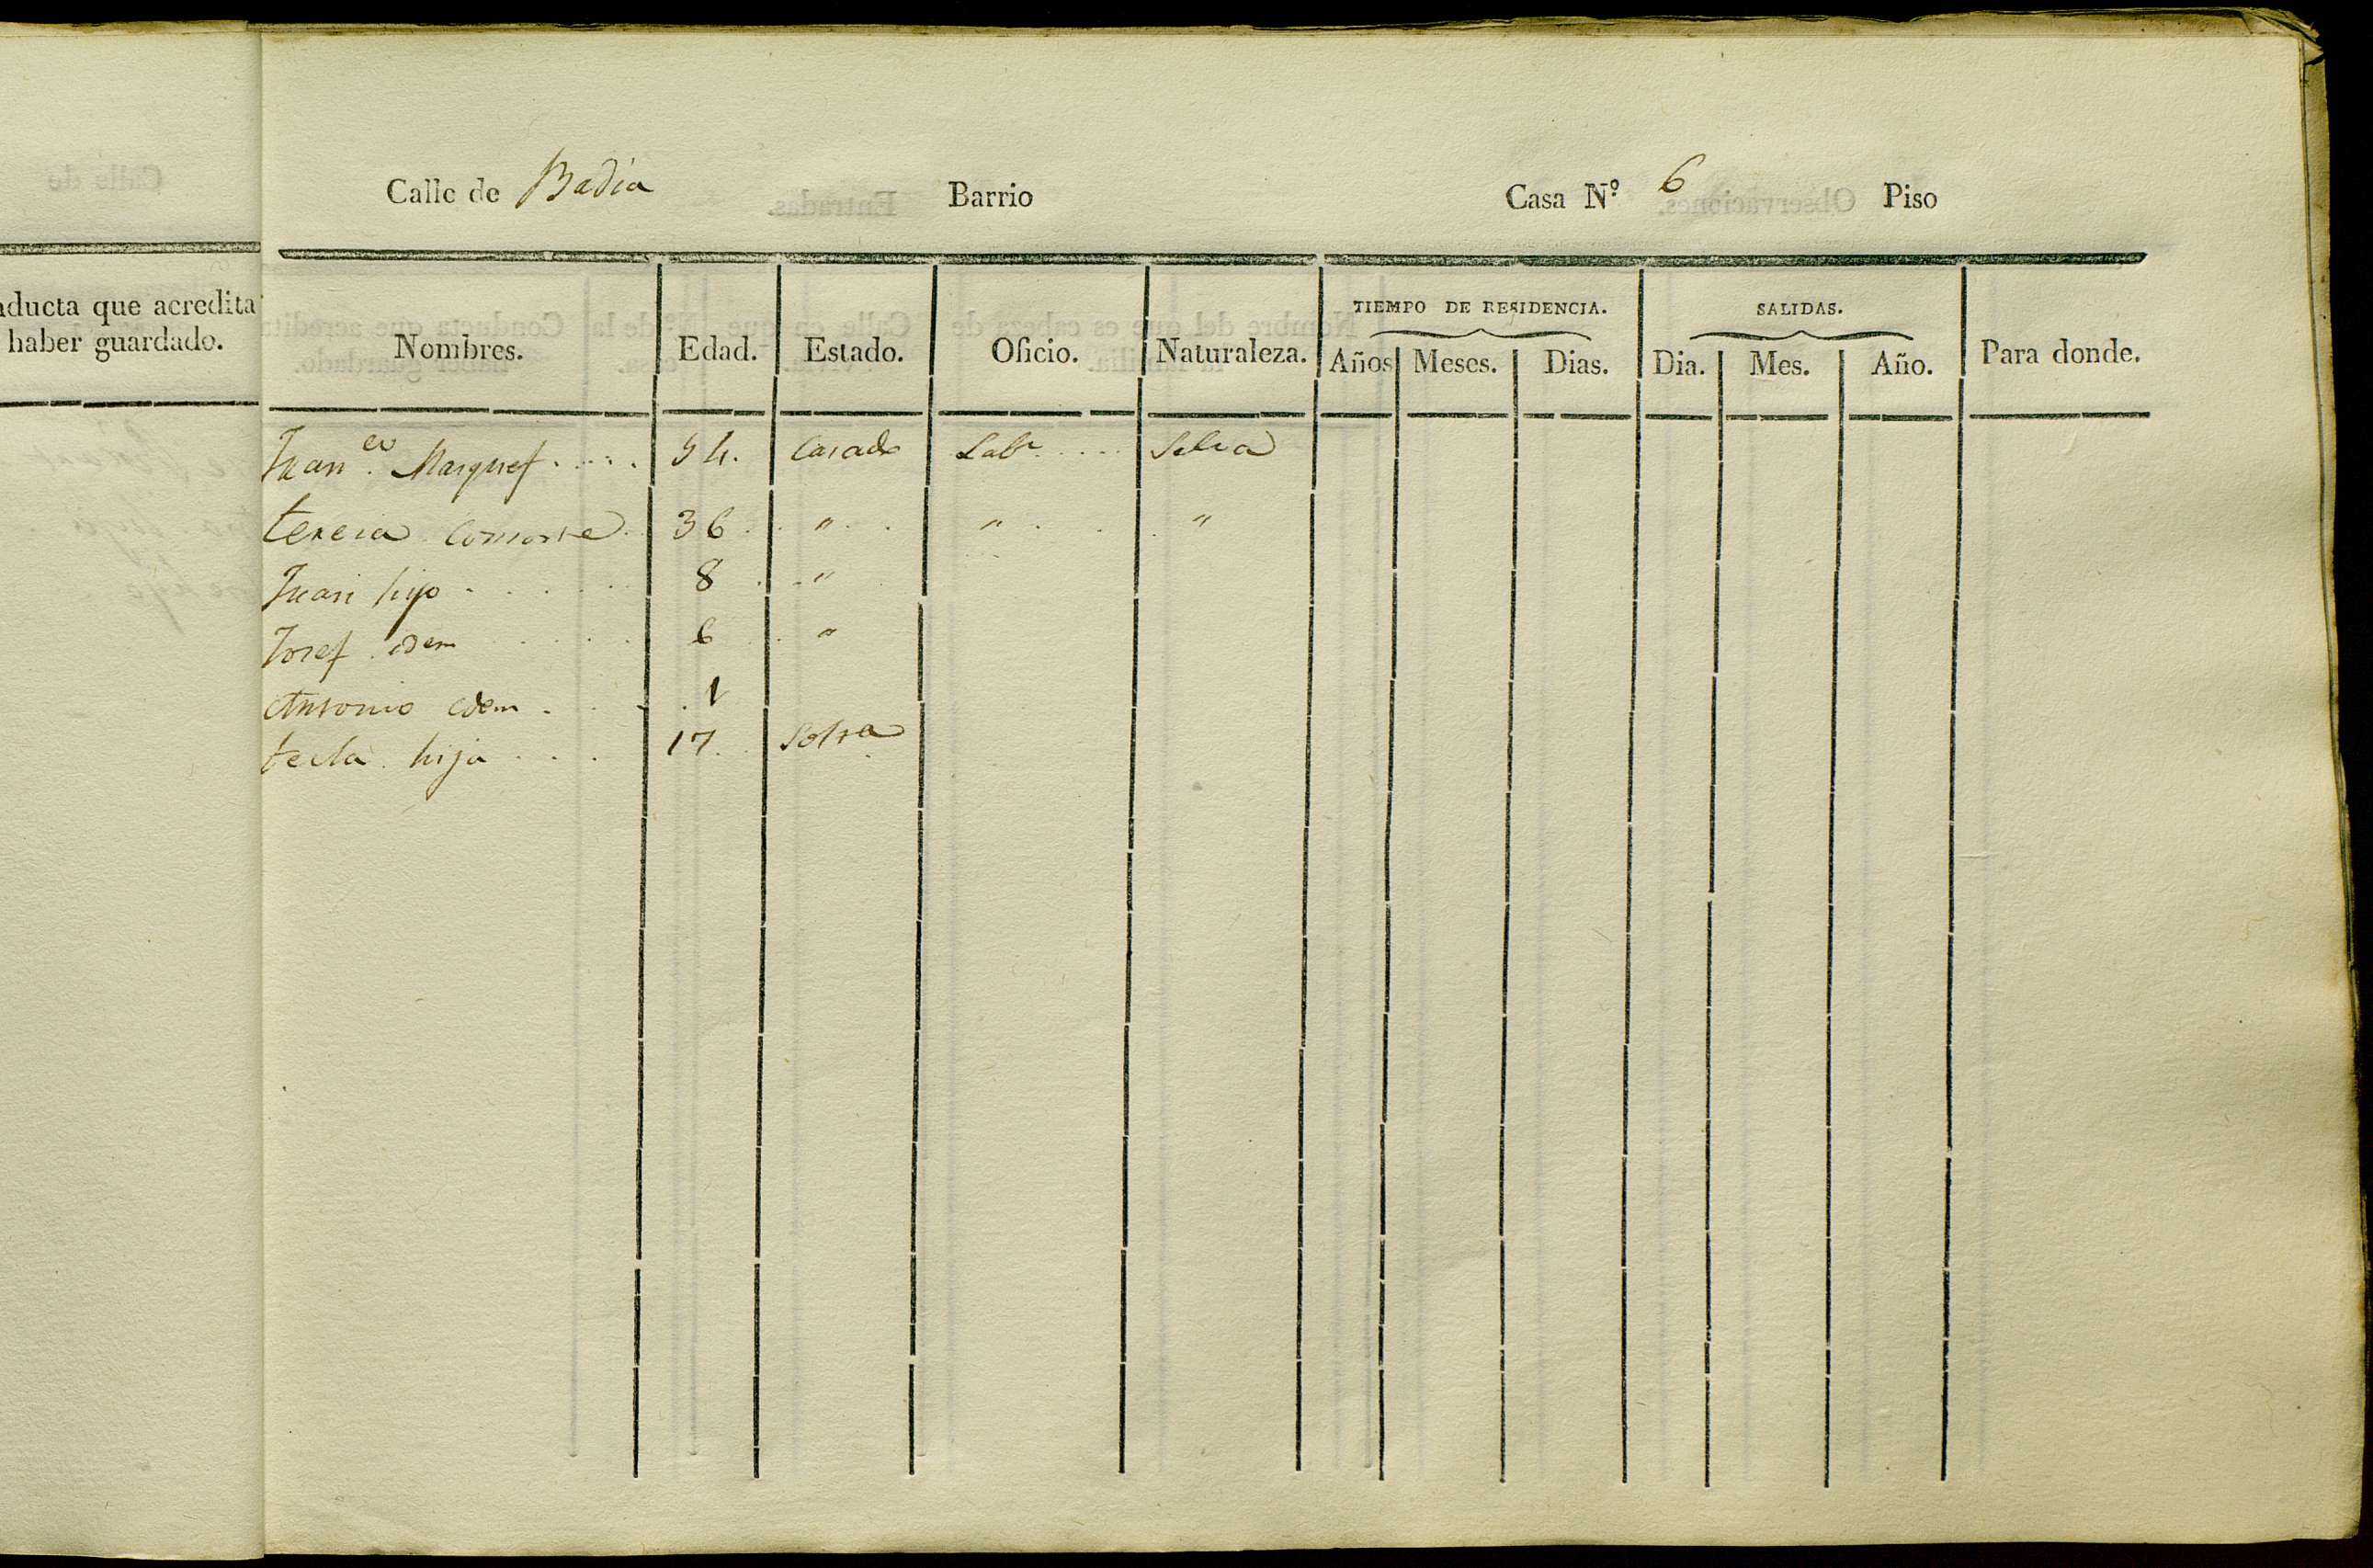 Calle de Badia Barrio Casa N.º 6 Piso
nducta que acredita
haber guardado.
TIEMPO DE RESIDENCIA. SALIDAS.
Nombres. Edad. Estado. Oficio. Naturaleza. Años Meses. Dias. Dia. Mes. Año. Para donde.
Marquef 54. Casado Lab.r Selva
teresia Consorte 36 " " "
Juan hijo 8 "
Josef idem 6 "
Antonio idem 1
tecla hija 17 Solra